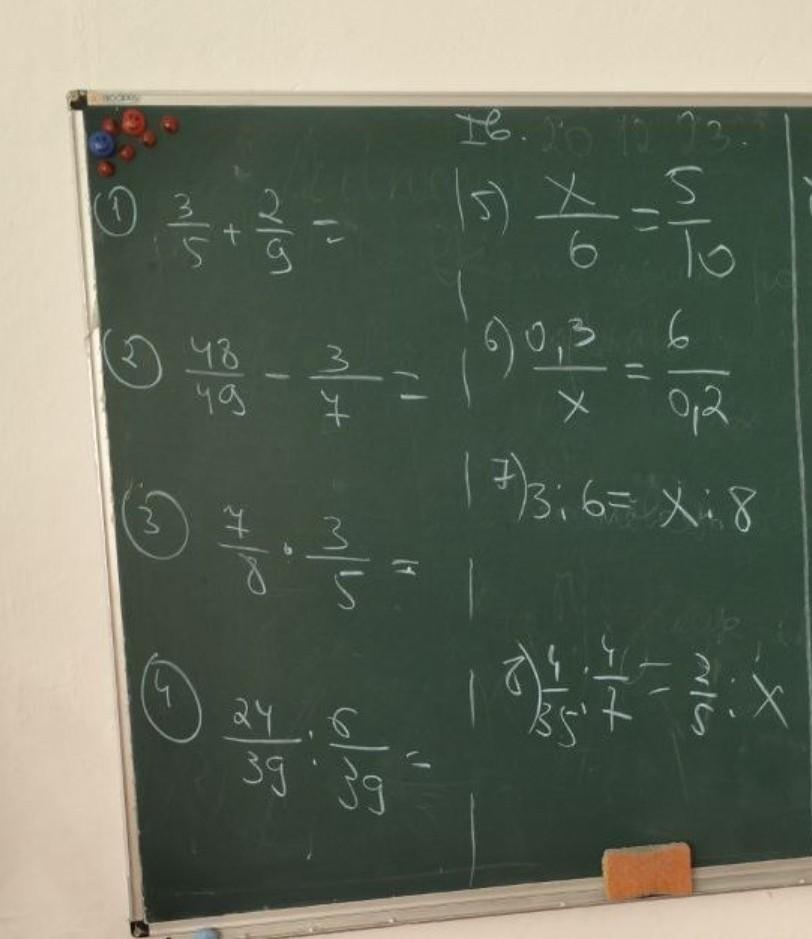 Iв. 20 12 23.
① 3/5 + 2/9 =
② 48/49 - 3/7 =
③ 7/8 · 3/5 =
④ 24/39 : 6/39 =
5) x/6 = 5/10
6) 0,3/x = 6/0,2
7) 3 : 6 = x : 8
8) 4/35 : 4/7 = 2/5 : x